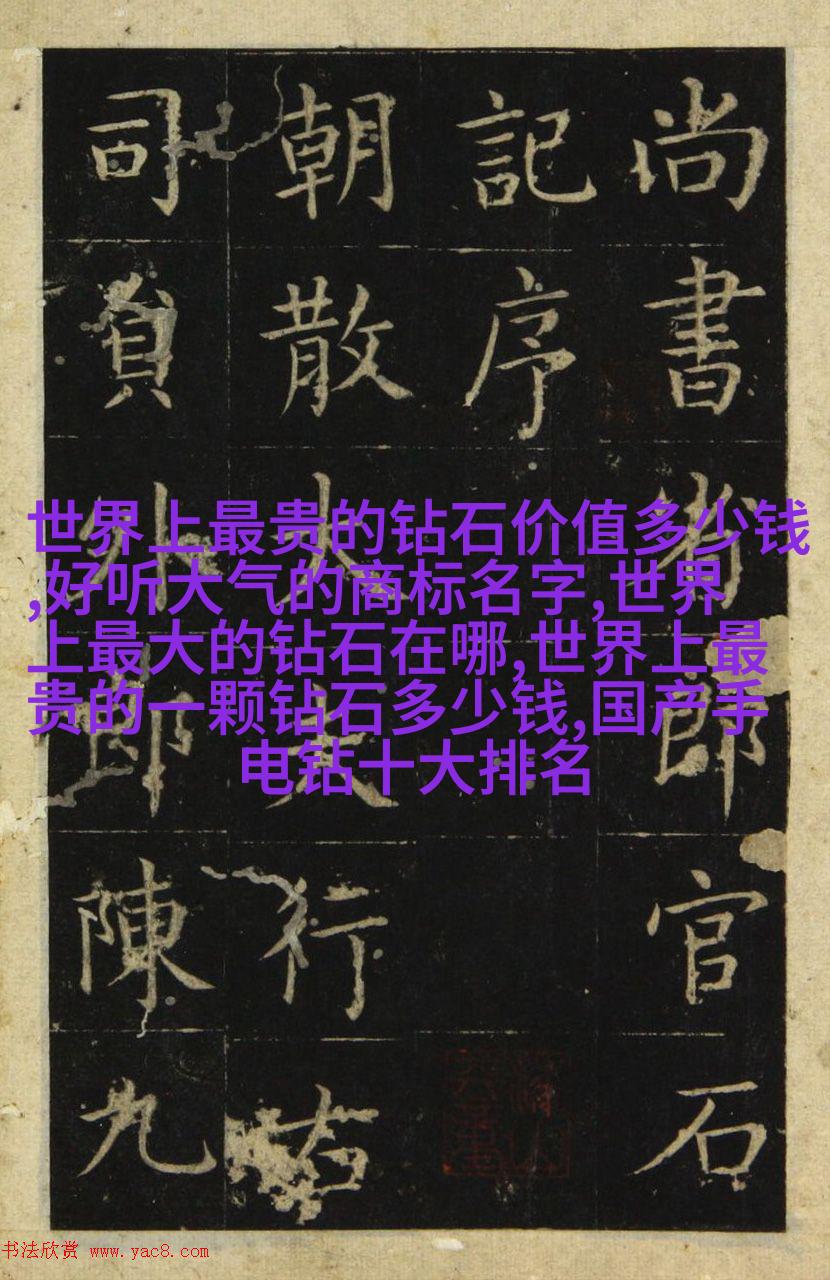 尚書省郎官石
記序
朝散大夫行右
司貟外郎陳九
世界上最贵的钻石价值多少钱
,好听大气的商标名字,世界
上最大的钻石在哪,世界上最
贵的一颗钻石多少钱,国产手
电钻十大排名
书法欣赏 www.yac8.com